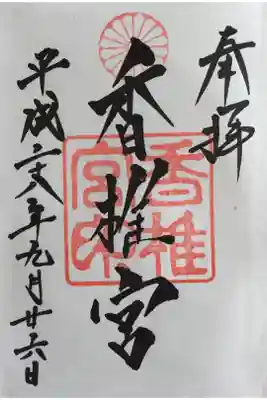 奉拝
香椎宮
香椎宮印
平成二八年九月廿六日